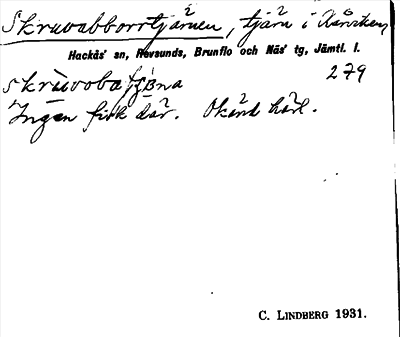 Skruvabborrtjärnen, tjärn i Åsviken
Hackås' sn, Revsunds, Brunflo och Näs' tg, Jämtl. l.
279
Ingen fisk där. Okänd härl.
C. LINDBERG 1931.